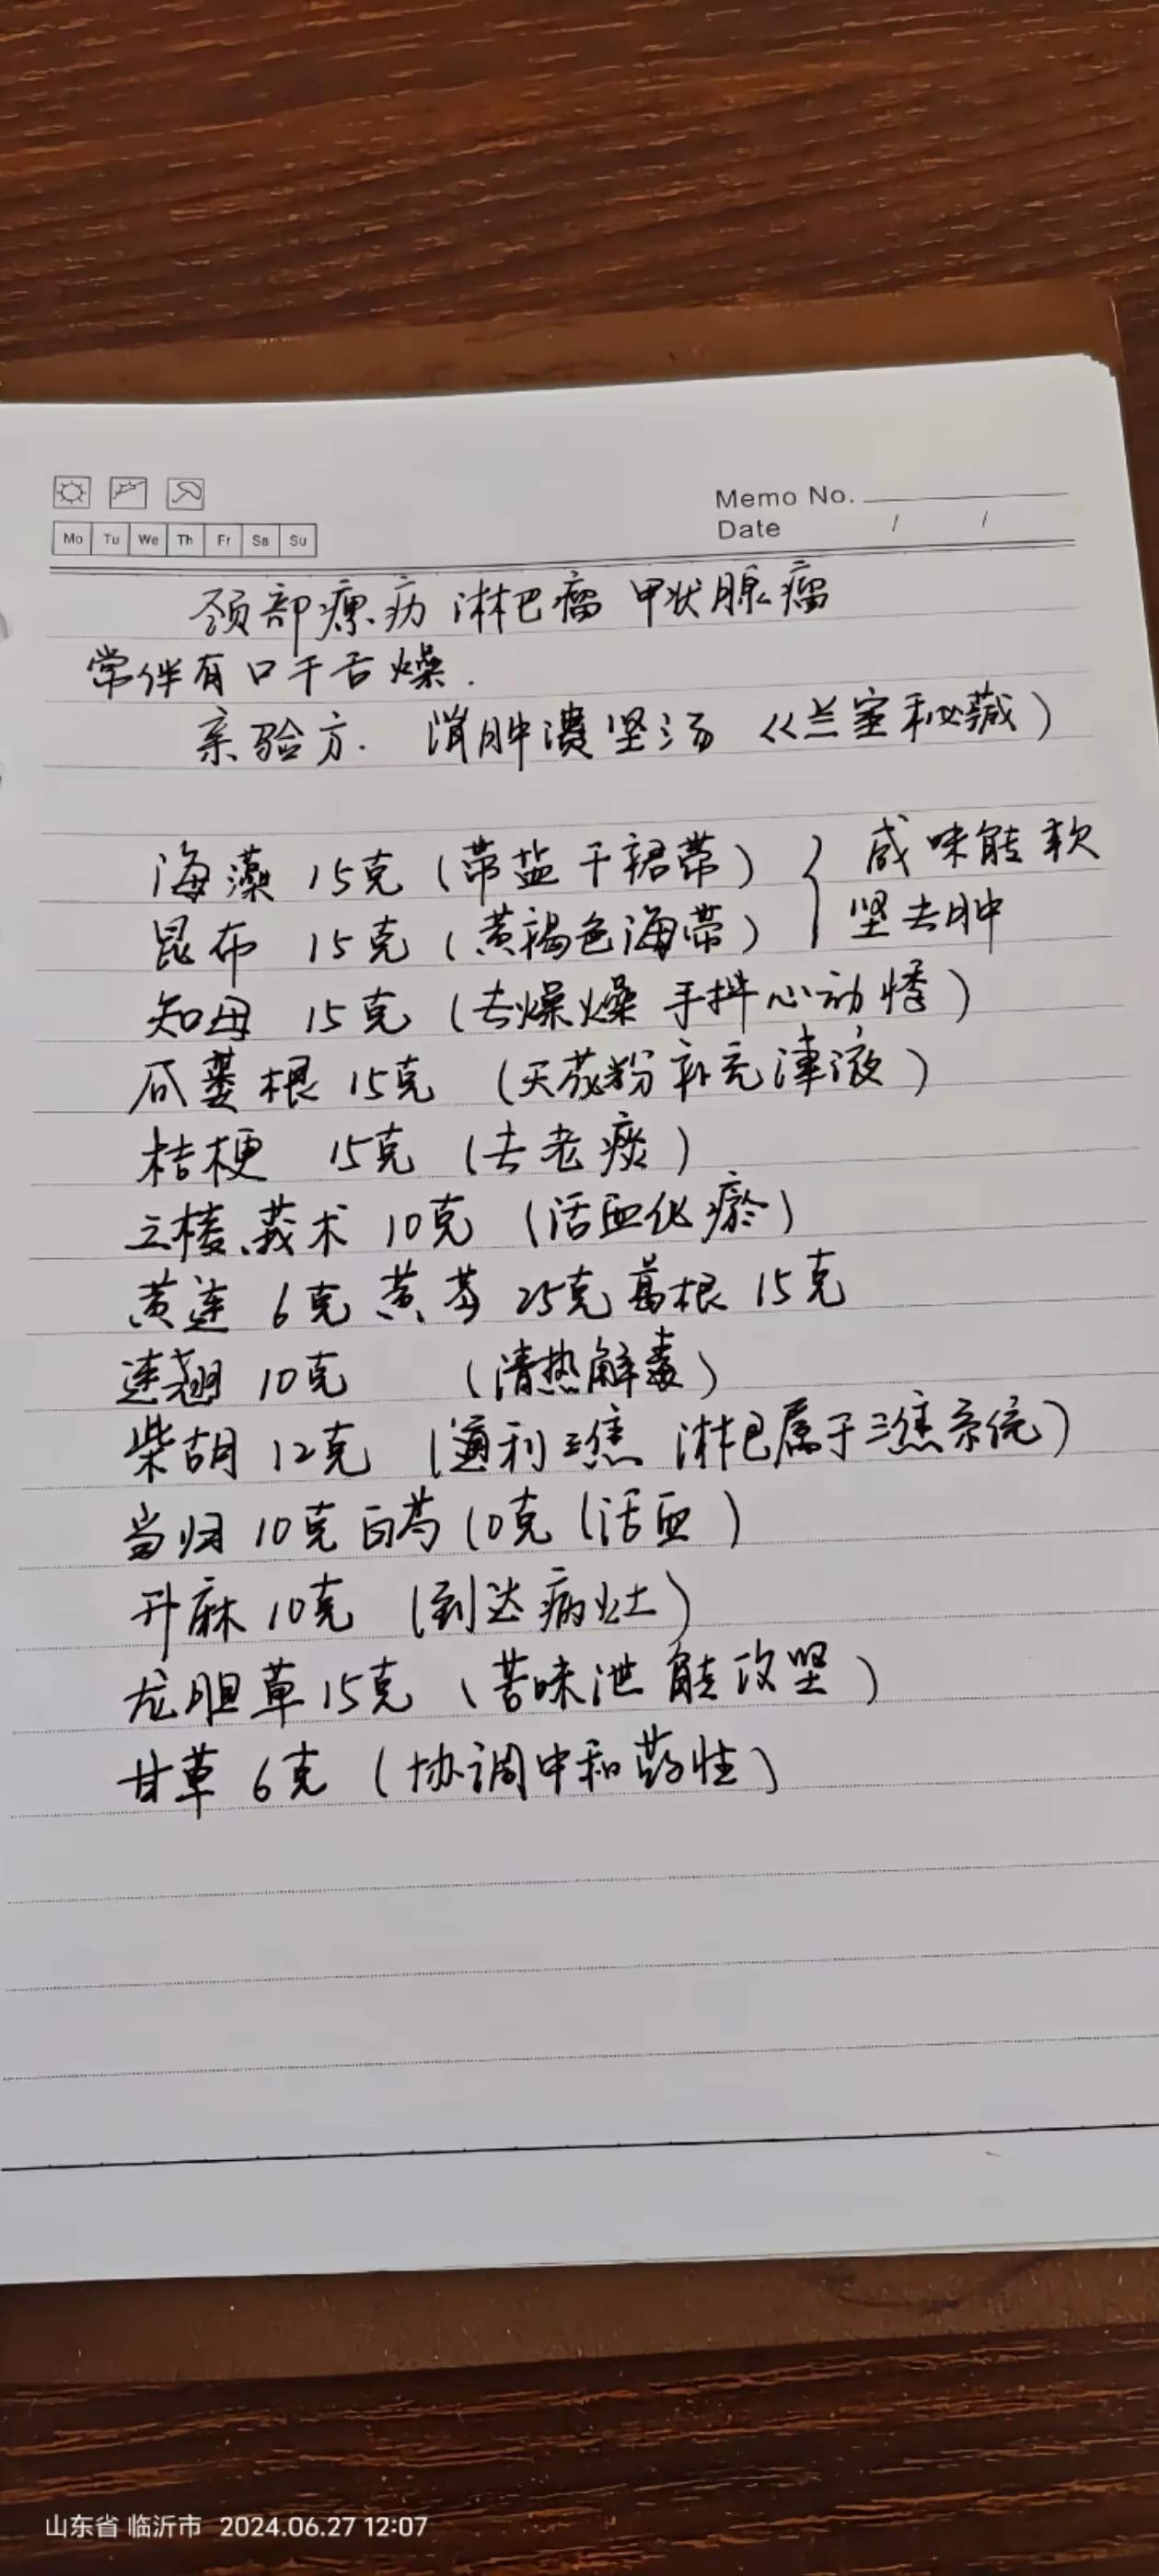 Memo No.
Mo Tu We Th Fr Sa Su
Date / /
颈部瘰疬 淋巴瘤 甲状腺瘤
常伴有口干舌燥.
亲验方. 消肿溃坚汤 《兰室秘藏)
海藻 15克 (带盐干裙带)
昆布 15克 (黄褐色海带)
咸味能软
坚去肿
知母 15克 (去燥燥 手抖心动悸)
瓜蒌根 15克 (天花粉补充津液)
桔梗 15克 (去老痰)
三棱、莪术 10克 (活血化瘀)
黄连 6克 黄芩 25克 葛根 15克
连翘 10克 (清热解毒)
柴胡 12克 (通利三焦 淋巴属于三焦系统)
当归 10克 白芍 10克 (活血)
升麻 10克 (到达病灶)
龙胆草 15克 (苦味泄能攻坚)
甘草 6克 (协调中和药性)
山东省 临沂市 2024.06.27 12:07